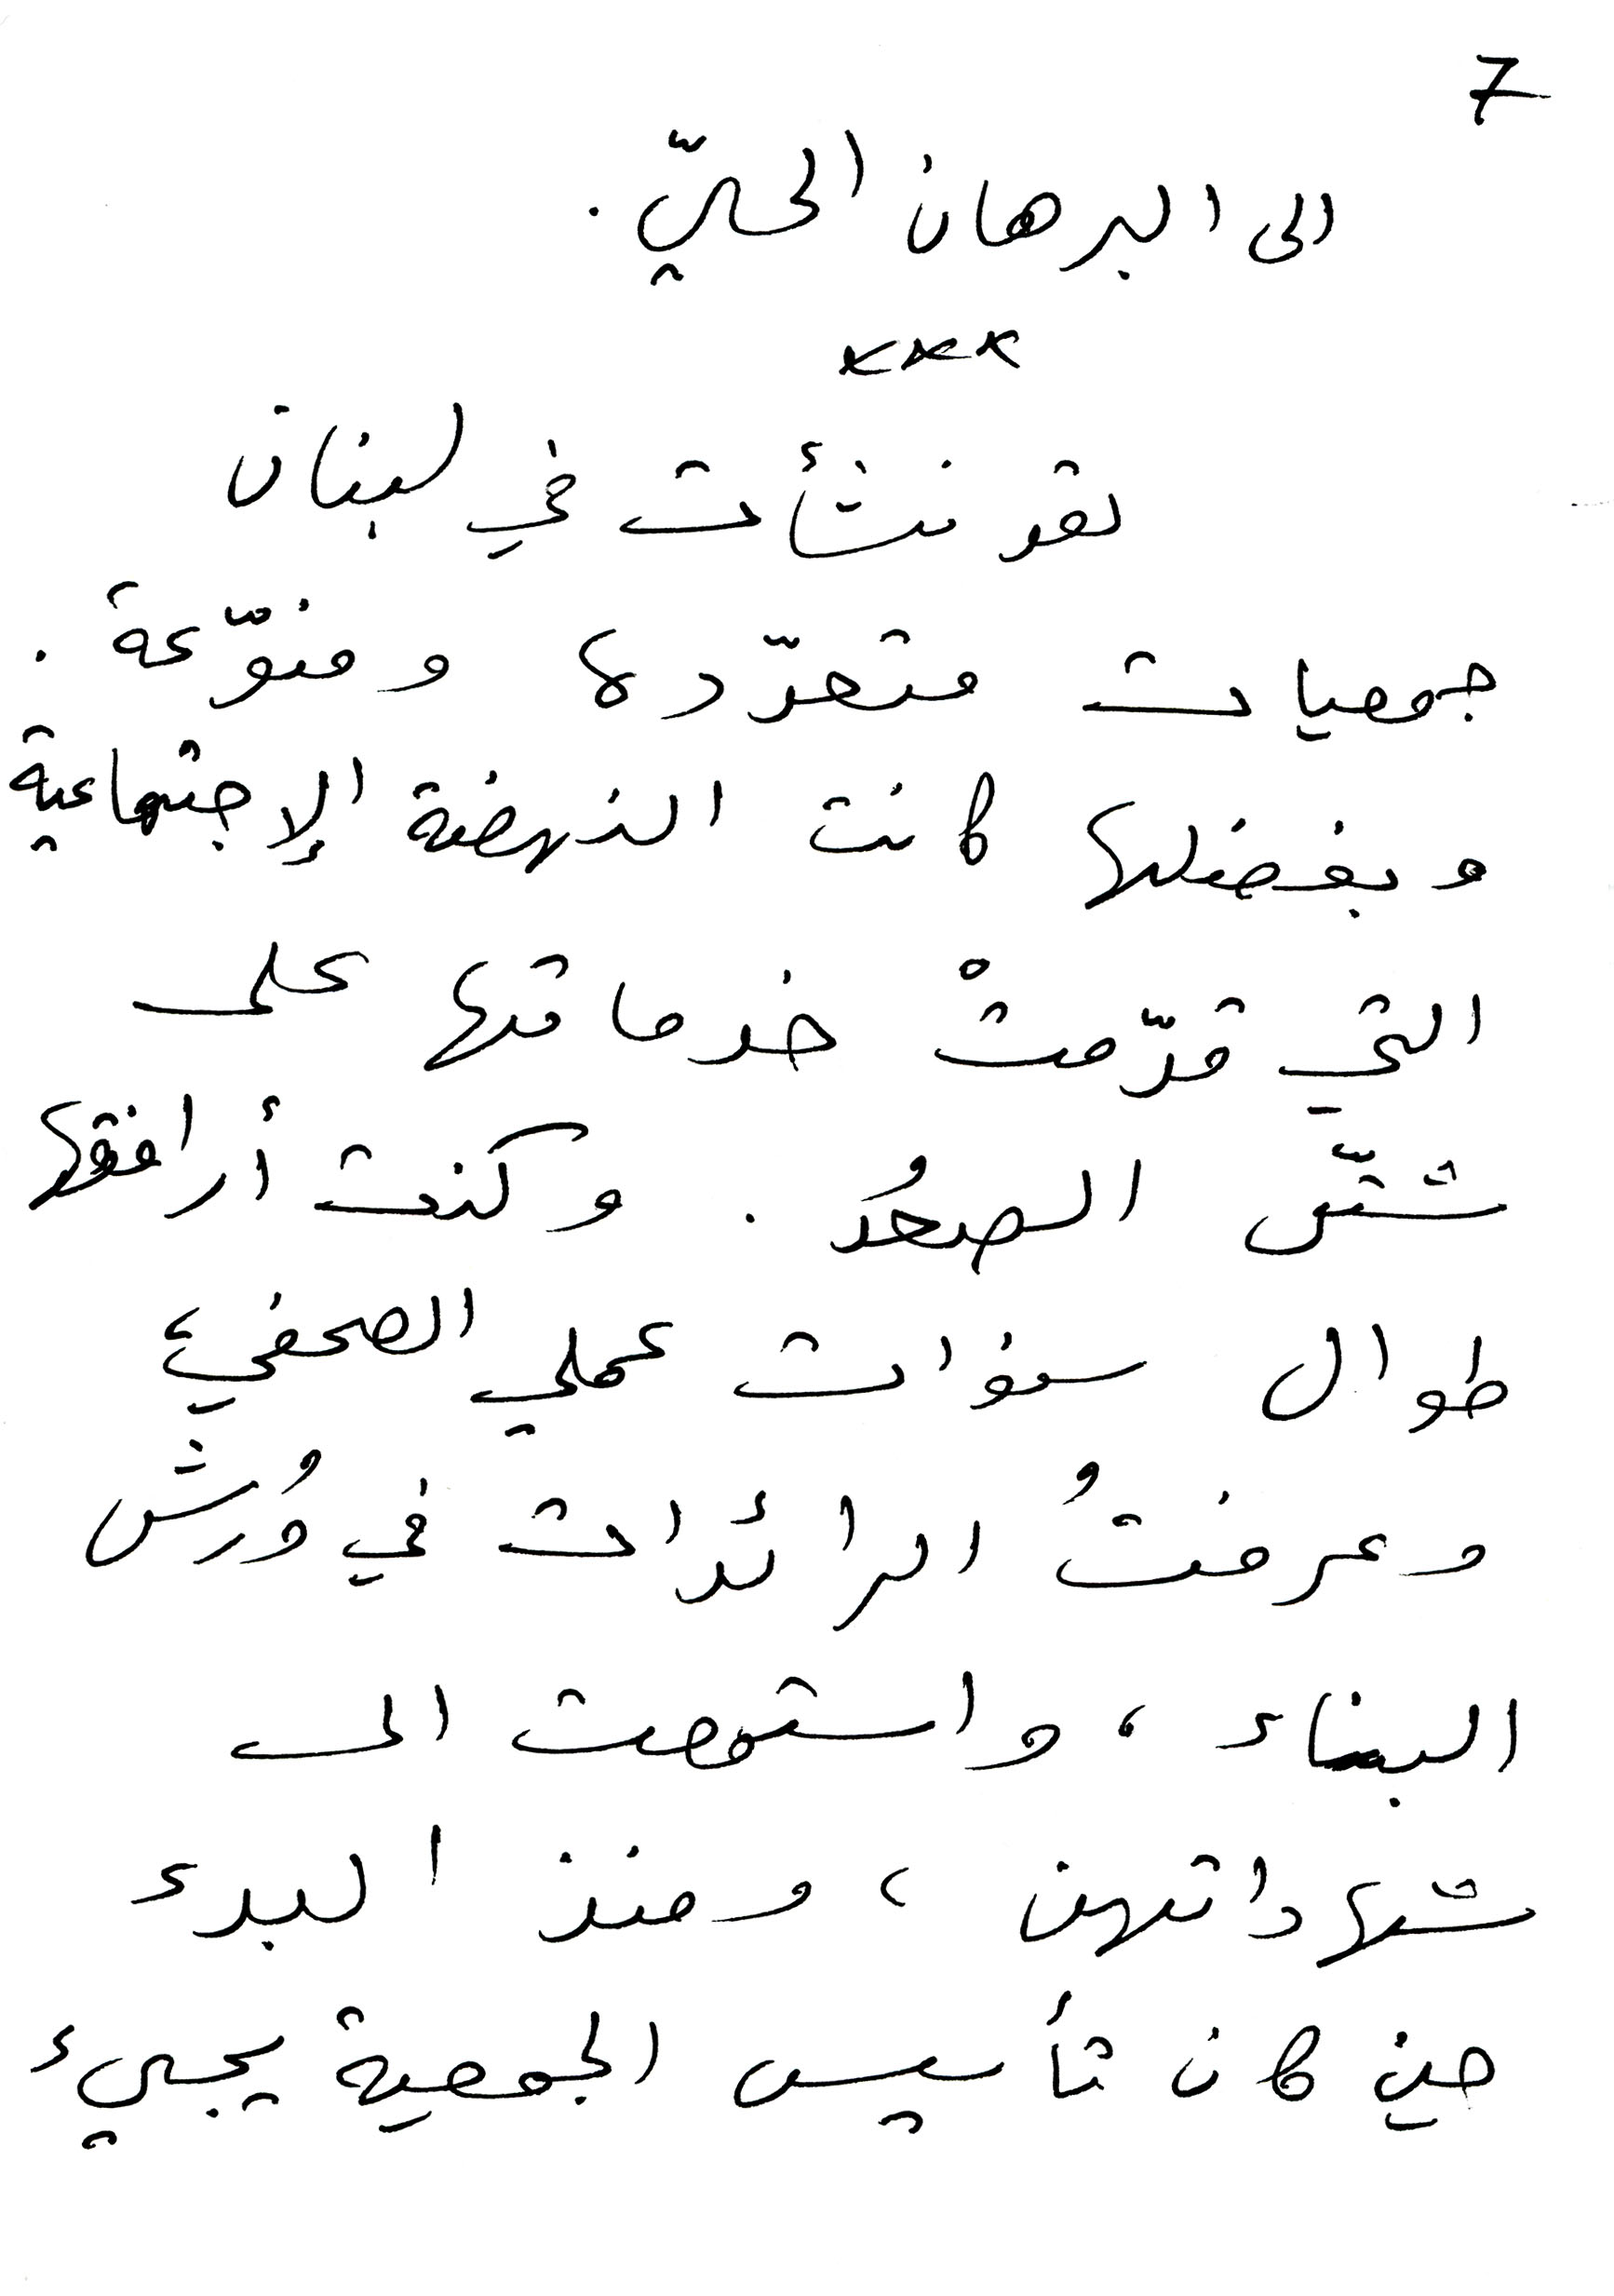 7
الى البرهان الحسّيّ.
×××
لقد نشأت في لبنان
جمعيات متعدّدة ومنوّعة.
وبفضلها كانت النهضة الإجتماعية
التي قدّمتْ خدماتها على
شتّى الصعُد. وكنت أرافقها
طوال سنوات عملي الصحفي،
وعرفتُ الرائدات في وُرش
البناء، واستمعت الى
شهاداتهن، ومنذ البدء
حين كان تأسيس الجمعية يجيء